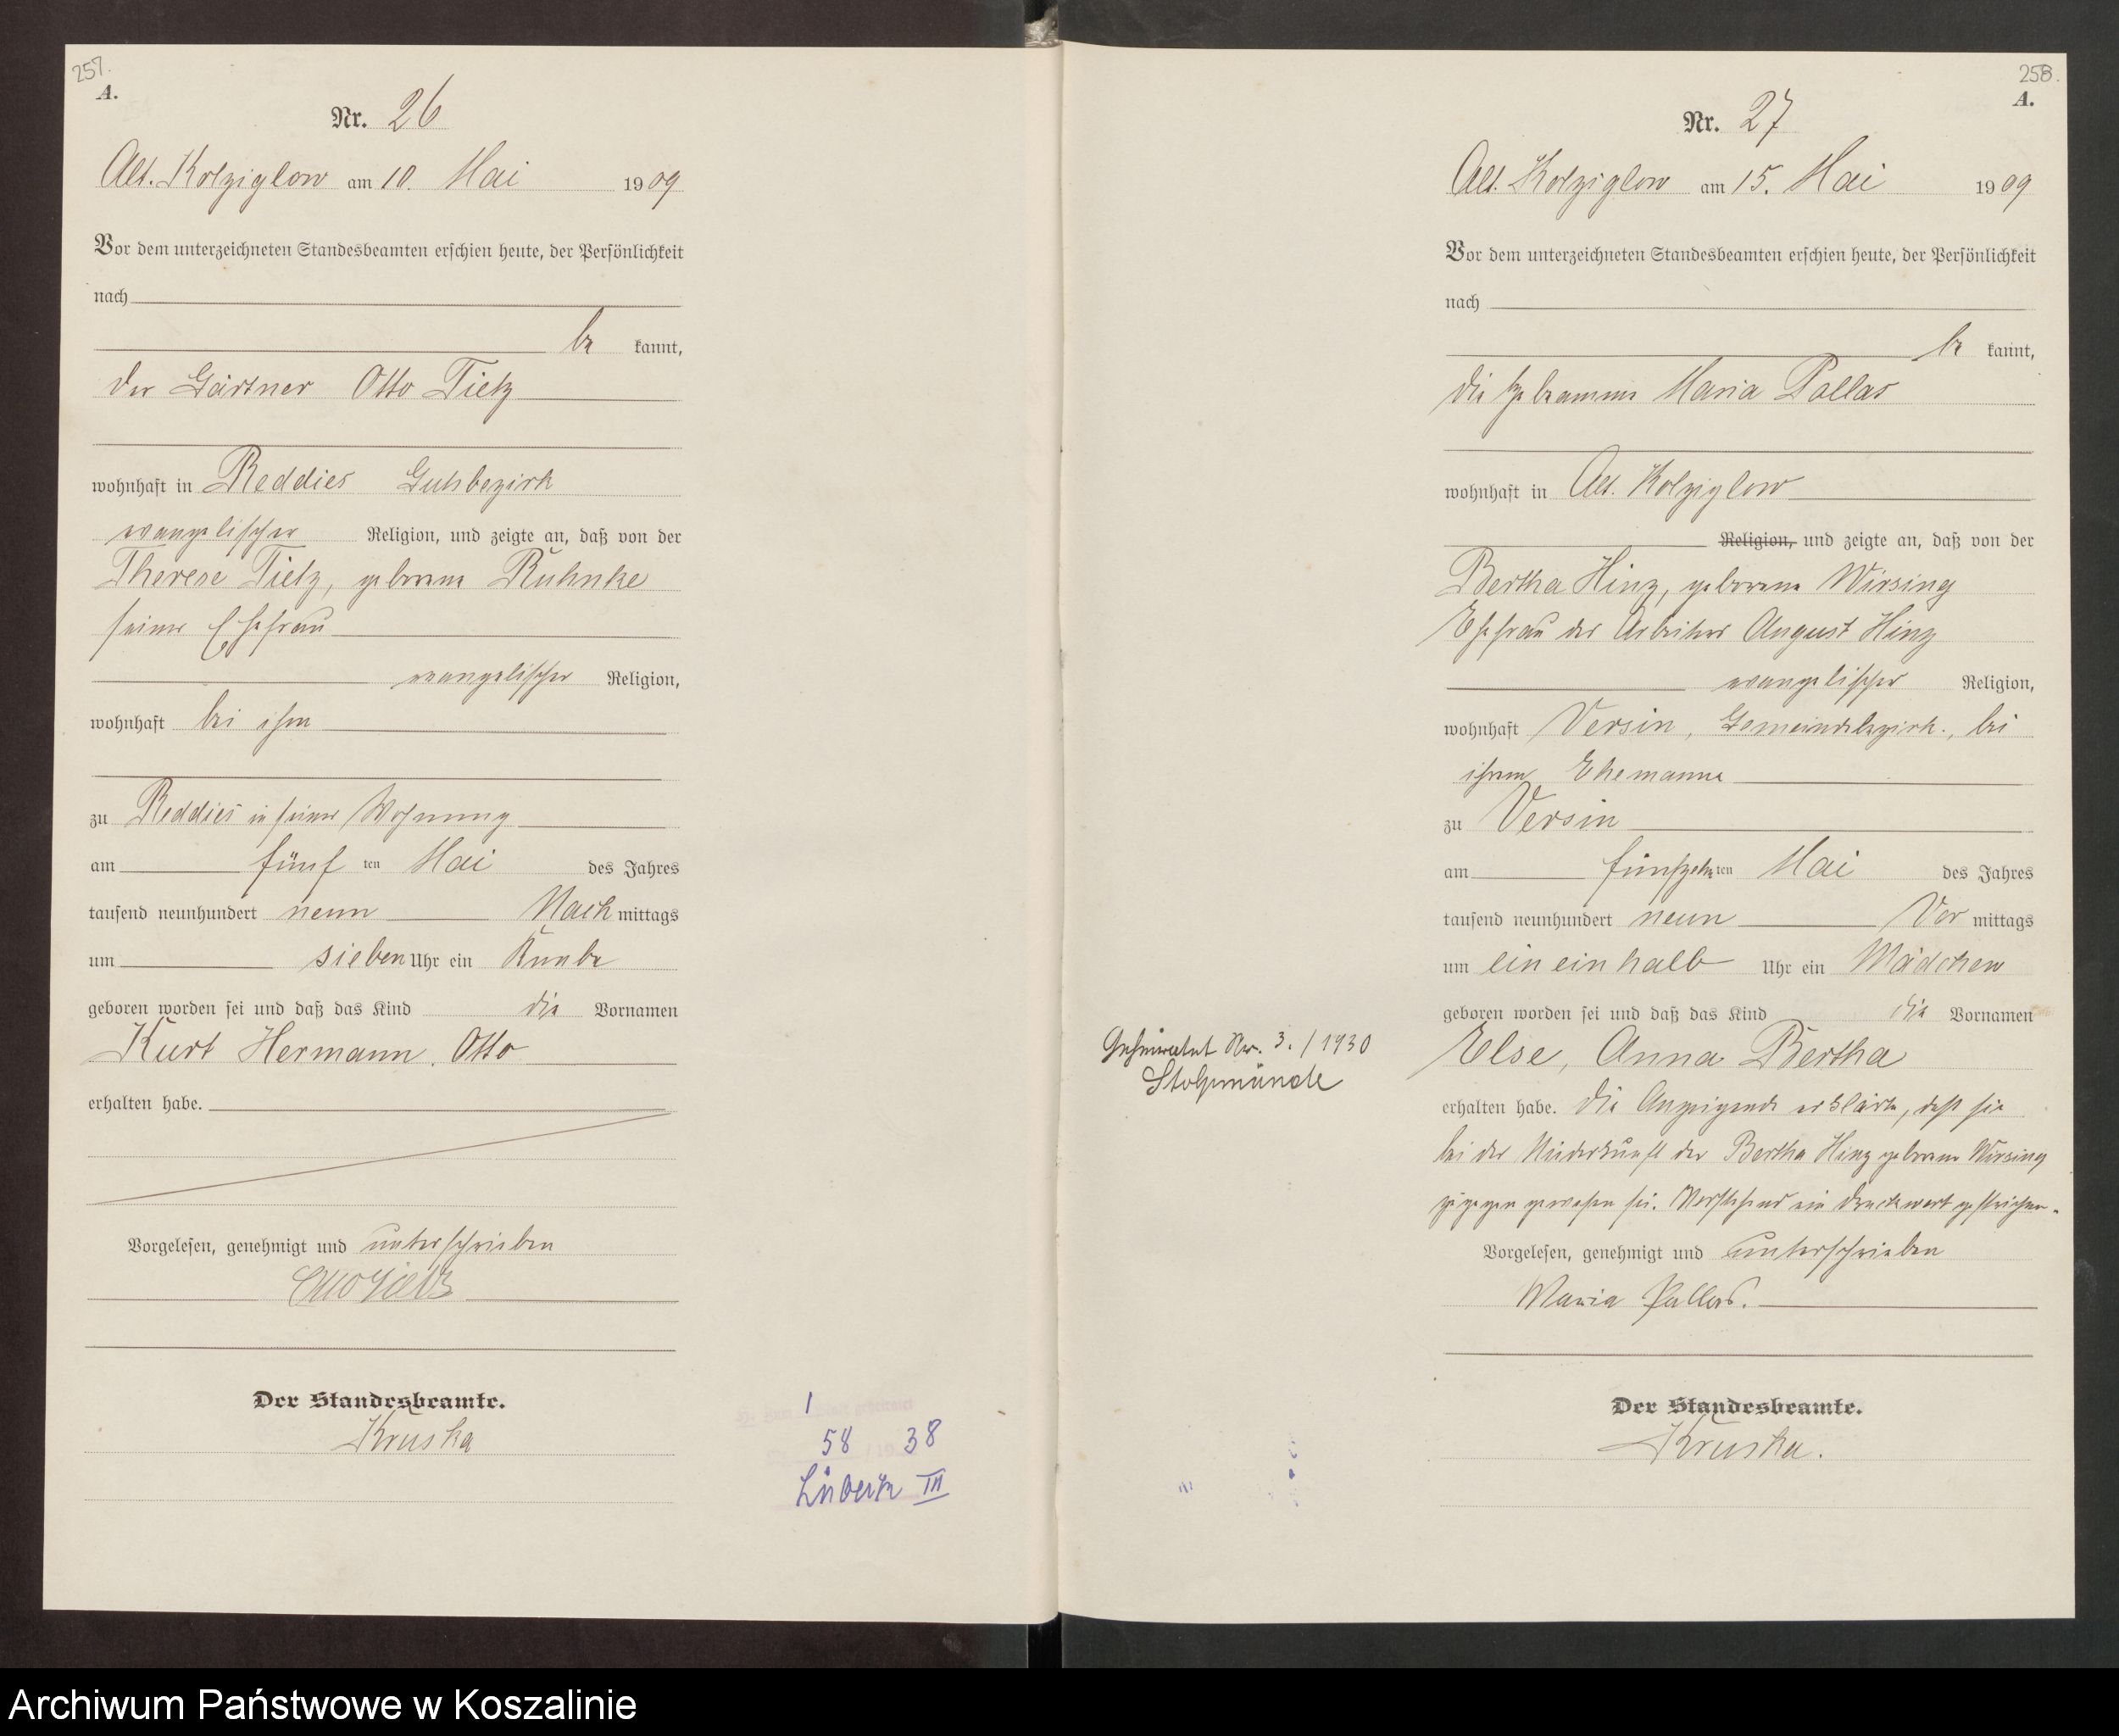 257.
A.
Nr. 26
Alt. Kolziglow am 10. Mai 1909
Vor dem unterzeichneten Standesbeamten erschien heute, der Persönlichkeit
nach
be kannt,
der Gärtner Otto Tietz
wohnhaft in Reddies Gutsbezirk
evangelischer Religion, und zeigte an, daß von der
Therese Tietz, geborene Ruhnke
seiner Ehefrau
evangelischer Religion,
wohnhaft bei ihm
zu Reddies in seiner Wohnung
am fünf ten Mai des Jahres
tausend neunhundert neun Nach mittags
um sieben Uhr ein Knabe
geboren worden sei und daß das Kind die Vornamen
Kurt Hermann Otto
erhalten habe.
Vorgelesen, genehmigt und unterschrieben
Otto Tietz
Der Standesbeamte.
Kruska
1
58 38
Lübeck III
258.
A.
Nr. 27
Alt. Kolziglow am 15. Mai 1909
Vor dem unterzeichneten Standesbeamten erschien heute, der Persönlichkeit
nach
be kannt,
die Hebamme Maria Pallas
wohnhaft in Alt. Kolziglow
Religion, und zeigte an, daß von der
Bertha Hinz, geborene Wirsing
Ehefrau des Arbeiters August Hinz
evangelischer Religion,
wohnhaft Versin, Gemeindebezirk, bei
ihrem Ehemanne
zu Versin
am fünfzehn ten Mai des Jahres
tausend neunhundert neun Vor mittags
um ein einhalb Uhr ein Mädchen
geboren worden sei und daß das Kind die Vornamen
Geheiratet Nr. 3./1930
Stolpmünde
Else, Anna Bertha
erhalten habe. Die Anzeigende erklärte, daß sie
bei der Niederkunft der Bertha Hinz geborene Wirsing
zugegen gewesen sei. Vorstehend ein Druckwort gestrichen.
Vorgelesen, genehmigt und unterschrieben
Maria Pallas.
Der Standesbeamte.
Kruska.
Archiwum Państwowe w Koszalinie